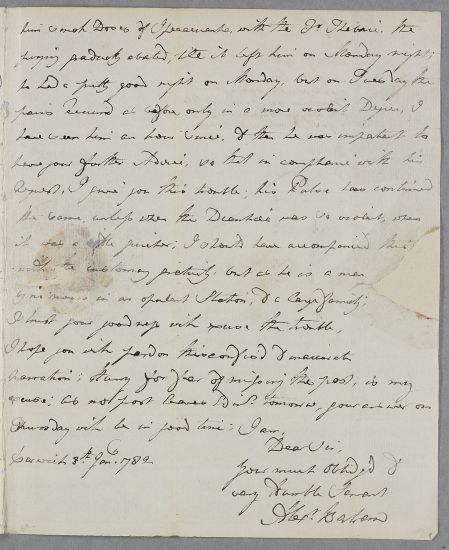 him small Doses of Ipecacuanha, with the Tr. Thebaic. the
purging gradually abated, till it left him on Monday night;
he had a pretty good night on Monday, but on Tuesday the
pains recurred as before only in a more violent Degree, I
have seen him an hour since, & then he was impatient to
have your further Advice, so that in compliance with his
request, I give you this trouble; his Pulse has continued
the same, unless when the Diarrhœa was so violent, when
it was a little quicker; I should have accompanied this
with the customary gratuity, but as he is a man
by no means in an opulent Station, & a large family,
I trust your goodness will excuse the trouble,
I hope you will pardon this confused & inaccurate
narration; Hurry for fear of missing the post, is my
excuse; as no post leaves tomorrow, your answer on
Thursday will be in good time; I am,
Dear Sir,
your much Oblig'd &
very humble Servant
Alexr.
8th. Jan. 1782